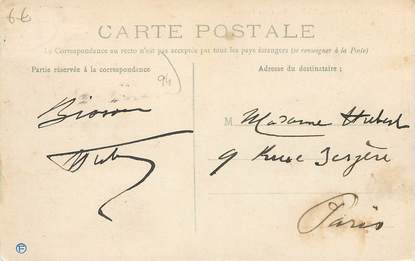 66
CARTE POSTALE
La Correspondance au recto n'est pas acceptée par tous les pays étrangers (se renseigner à la Poste)
Partie réservée à la correspondance
Adresse du destinataire :
94
M Madame Hubert
9 Rue Bergère
Paris
F